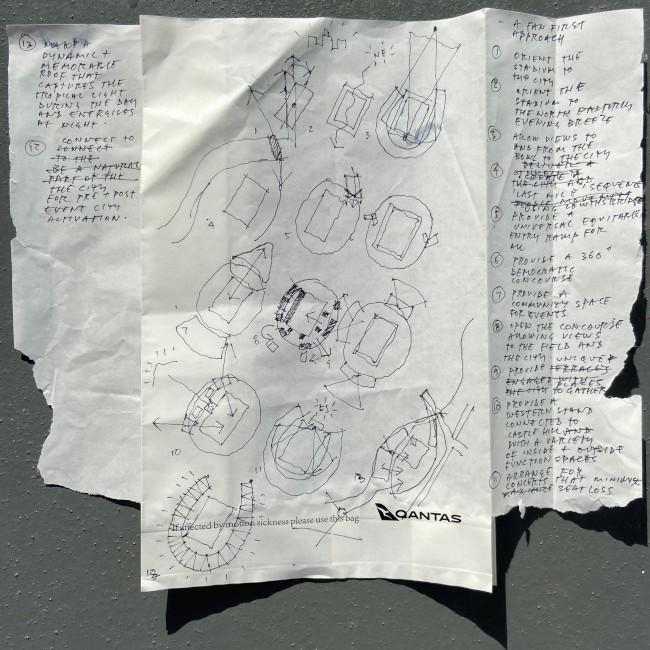 12
MAKE A
DYNAMIC +
MEMORABLE
ROOF THAT
CAPTURES THE
TROPICAL LIGHT
DURING THE DAY
AND ENERGISES
AT NIGHT.
CONNECT TO
CONNECT
TO THE
BE A NATURAL
PART OF THE
THE CITY
FOR PRE + POST
EVENT CITY
ACTIVATION.
NE
1
2
3
4
5
7
8
9
10
11
If affected by motion sickness please use this bag
QANTAS
- A FAN FIRST
APPROACH
1
ORIENT THE
STADIUM TO
THE CITY
2
ORIENT THE
STADIUM TO
THE NORTH EASTERLY
EVENING BREEZE
3
ALLOW VIEWS TO
AND FROM THE
BOWL TO THE CITY
4
THE CITY
LAST MILE SEQUENCE
USING 2 BRIDGES
5
PROVIDE A
UNIVERSAL EQUITABLE
ENTRY RAMP FOR
ALL
6
PROVIDE A 360°
DEMOCRATIC
CONCOURSE
7
PROVIDE A
COMMUNITY SPACE
FOR EVENTS
8
OPEN THE CONCOURSE
ALLOWING VIEWS
TO THE FIELD AND
THE CITY. UNIQUE
9
PROVIDE TERRACES
ENGAGED WITH PLACES
THE CITY TO GATHER
10
PROVIDE A
WESTERN STAND
CONNECTED TO
CASTLE HILL AND
WITH A VARIETY
OF INSIDE + OUTSIDE
FUNCTION SPACES
11
ARRANGE FOR
CONCERTS THAT MINIMISE
SEAT LOSS